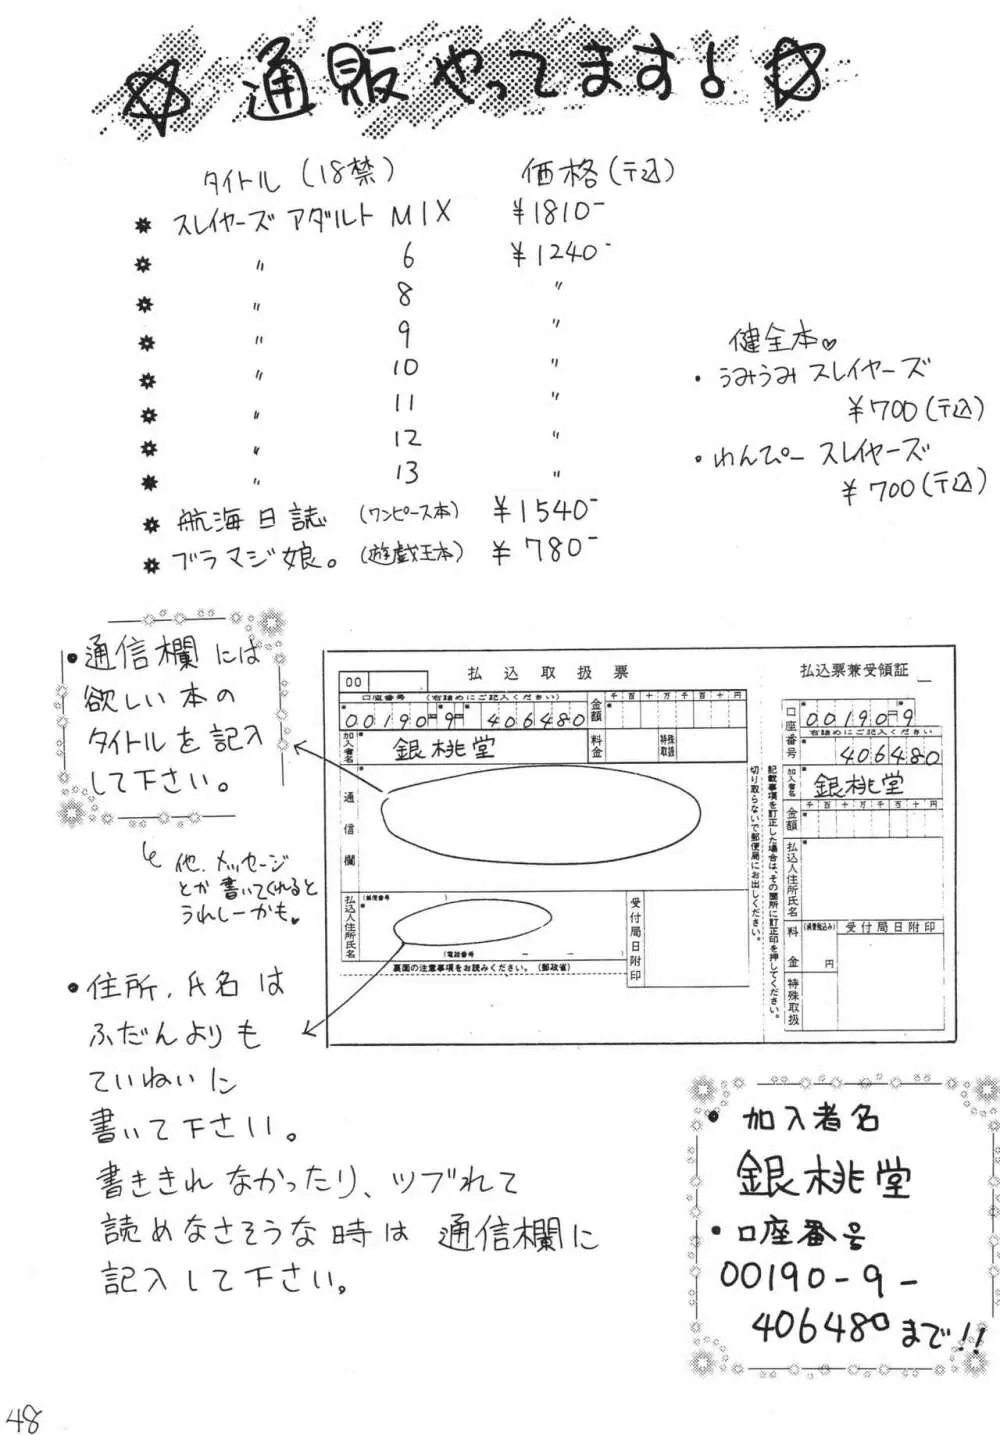 ☆ 通販やってます♪ ☆
タイトル (18禁) 価格(〒込)
スレイヤーズ アダルト MIX ¥1810-
〃 6 ¥1240-
〃 8 〃
〃 9 〃
〃 10 〃
〃 11 〃
〃 12 〃
〃 13 〃
航海日誌 (ワンピース本) ¥1540-
ブラマジ娘。(遊戯王本) ¥780-
健全本♥
・うみうみ スレイヤーズ
¥700(〒込)
・わんぴー スレイヤーズ
¥700(〒込)
・通信欄には
欲しい本の
タイトルを記入
して下さい。
他、メッセージ
とか書いてくれると
うれしーかも♥
・住所、氏名は
ふだんよりも
ていねいに
書いて下さい。
書ききれなかったり、ツブれて
読めなさそうな時は 通信欄に
記入して下さい。
00
払込取扱票
口座番号 (右詰めにご記入ください)
00190 9 406480
金額
千百十万千百十円
加入者名
銀桃堂
料金
特殊取扱
通信欄
払込人住所氏名
(郵便番号 )
(電話番号 - - )
受付局日附印
裏面の注意事項をお読みください。(郵政省)
切り取らないで郵便局にお出しください。
記載事項を訂正した場合は、その箇所に訂正印を押してください。
払込票兼受領証
口座番号
00190 9
右詰めにご記入ください
406480
加入者名
銀桃堂
金額
千百十万千百十円
払込人住所氏名
料金
(消費税込み)
円
受付局日附印
特殊取扱
・加入者名
銀桃堂
・口座番号
00190-9-
406480まで!!
48